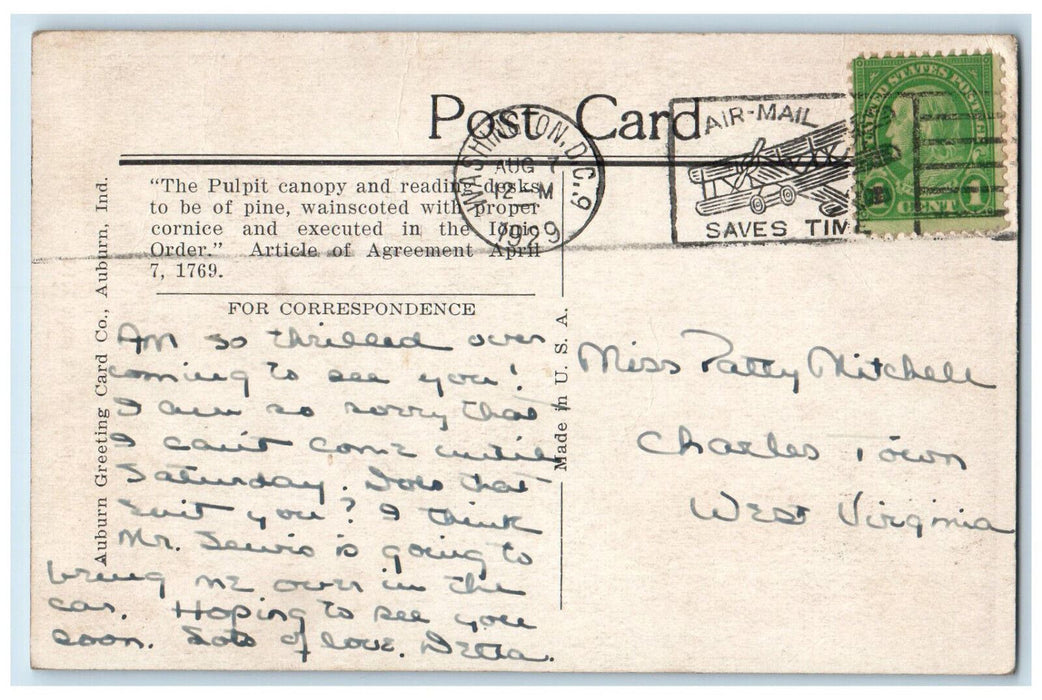 Post Card
WASHINGTON, D.C. 9
AUG 7
12-M
1929
AIR-MAIL
SAVES TIME
UNITED STATES POSTAGE
1 CENT 1
"The Pulpit canopy and reading desks,
to be of pine, wainscoted with proper
cornice and executed in the Ionic
Order." Article of Agreement April
7, 1769.
FOR CORRESPONDENCE
Auburn Greeting Card Co., Auburn, Ind.
Made in U. S. A.
Am so thrilled over
coming to see you!
I am so sorry that
I can't come until
Saturday. Does that
suit you? I think
Mr. Lewis is going to
bring me over in the
car. Hoping to see you
soon. Lots of love. Detta.
Miss Patty Mitchell
Charles Town
West Virginia